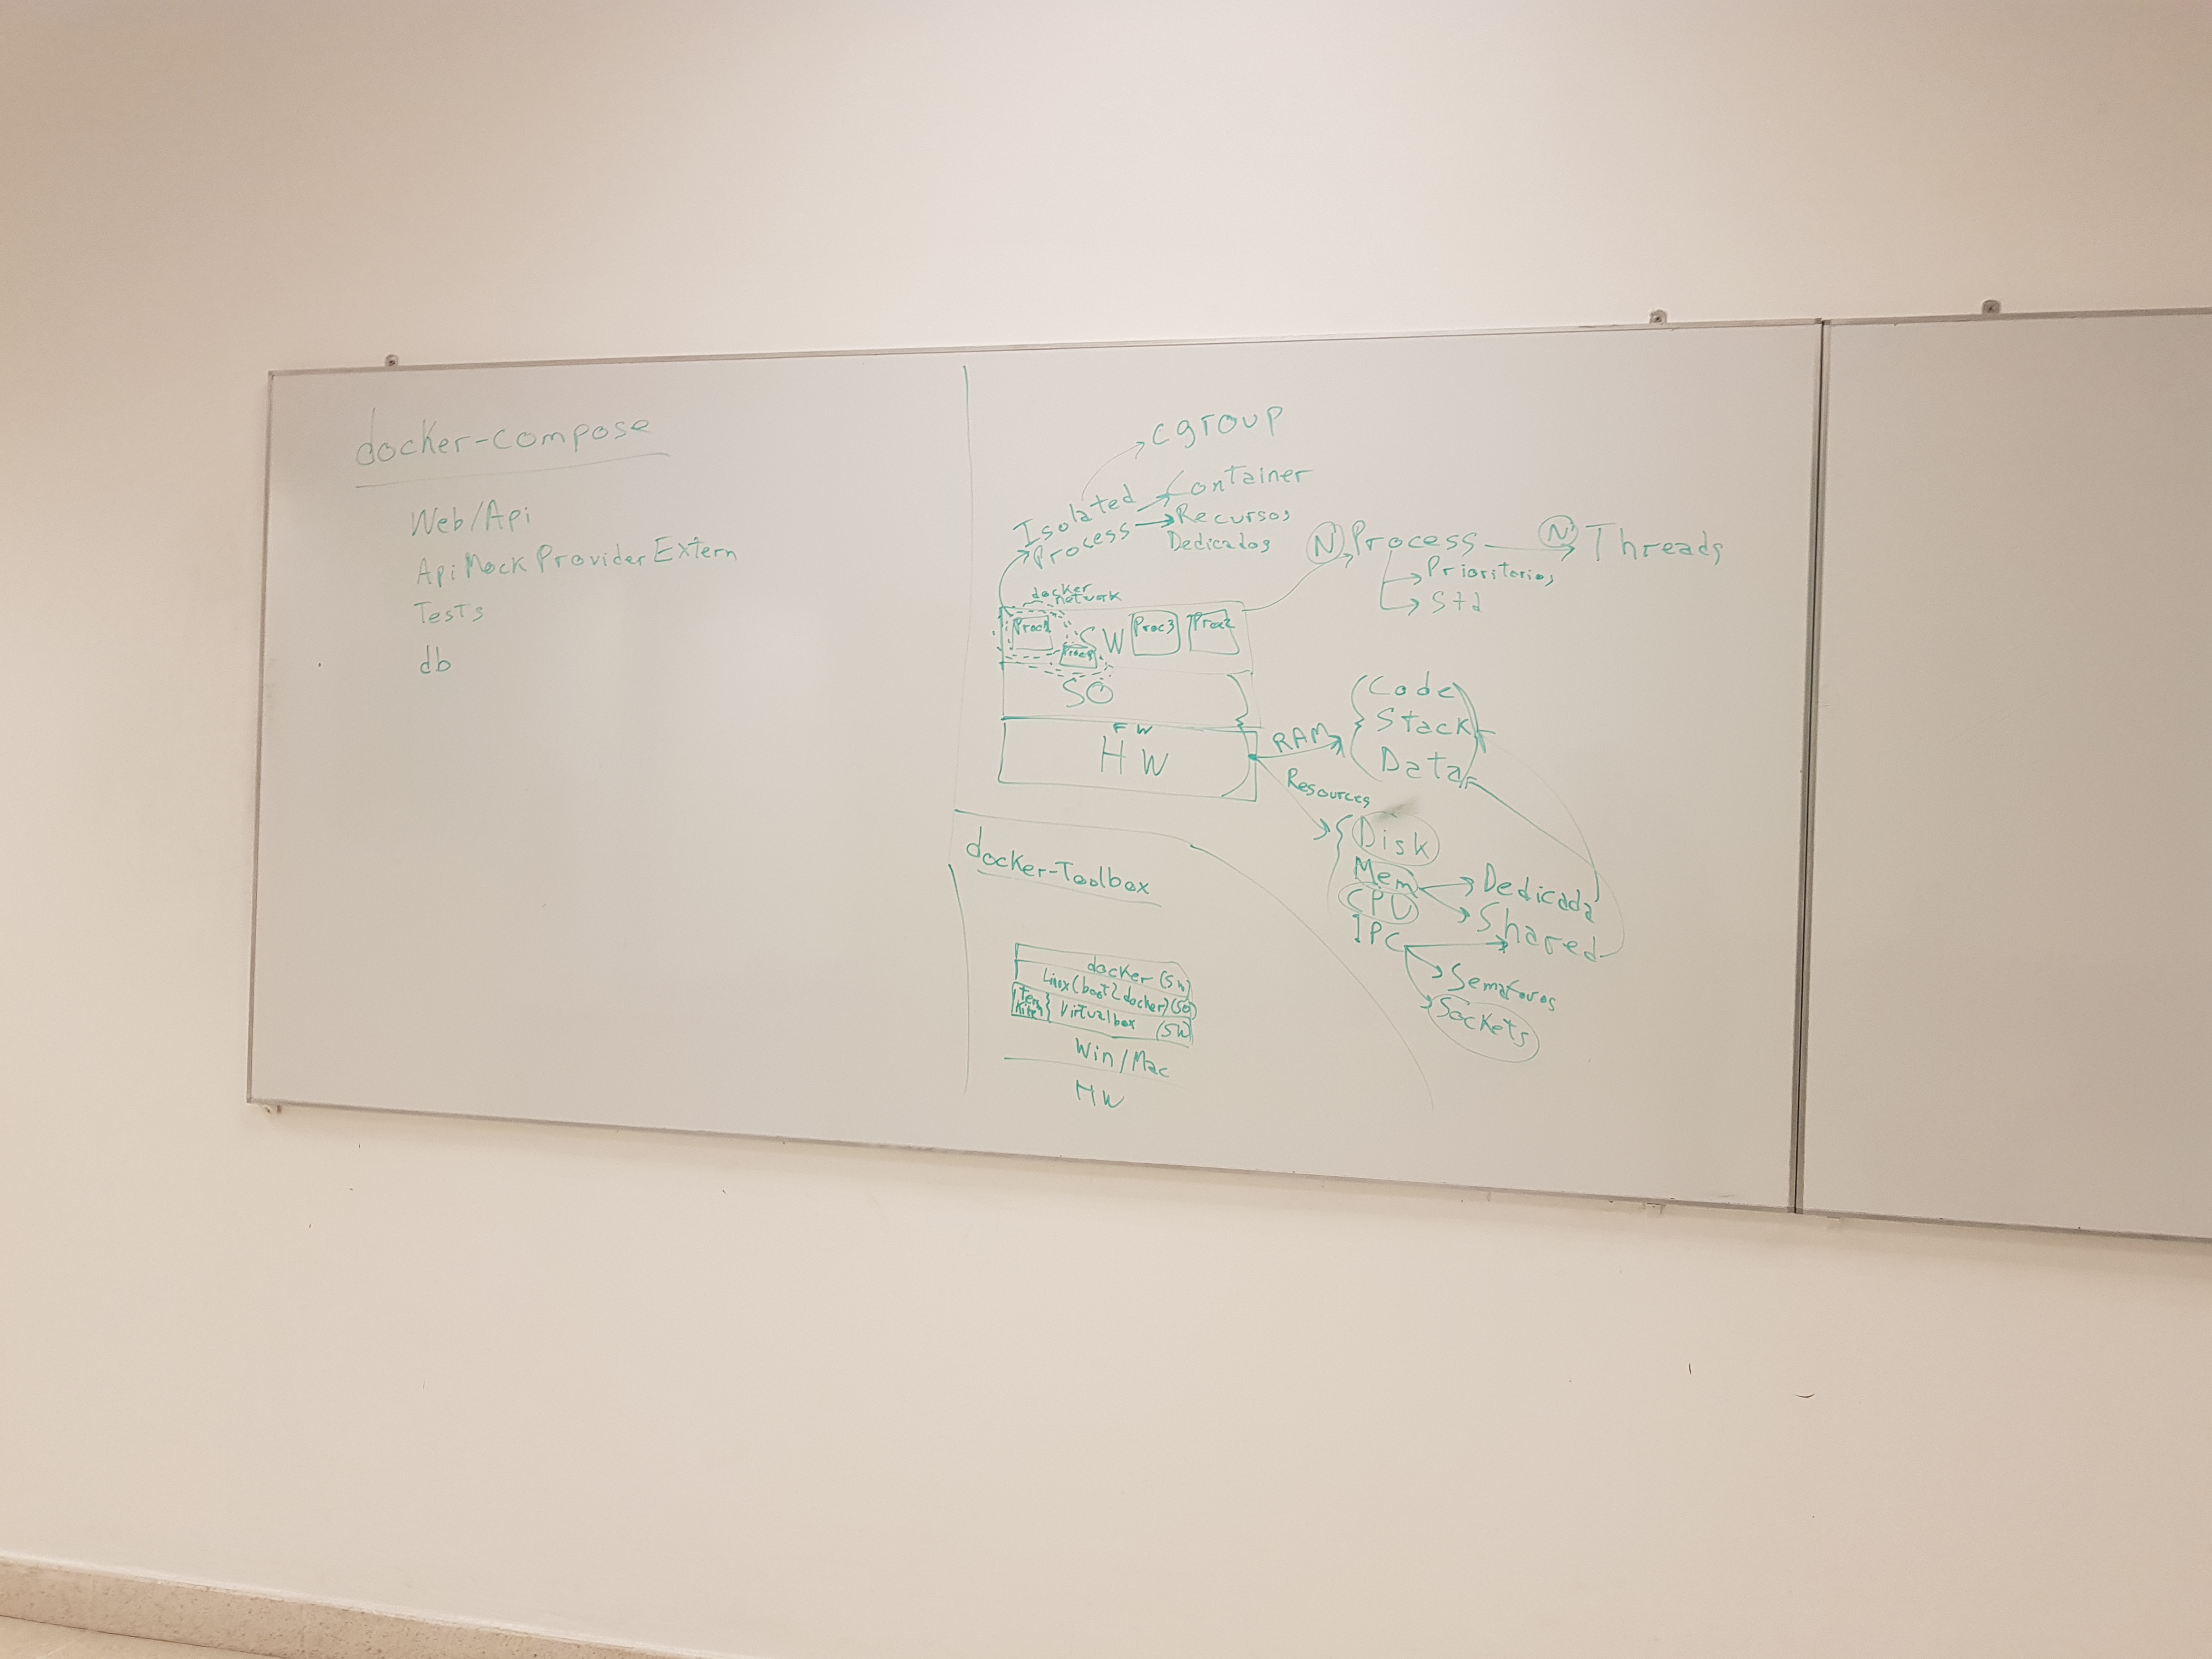 docker-compose
Web/Api
ApiMockProviderExtern
Tests
db
cgroup
Isolated
Process
Container
Recursos
Dedicados
N Process
N' Threads
Prioritarios
Std
docker
network
Proc1
SW
Proc3
Proc2
SO
FW
HW
RAM
Code
Stack
Data
Resources
Disk
Mem
CPU
IPC
Dedicada
Shared
Semaforos
Sockets
docker-Toolbox
docker (SW)
Linux (boot2docker) (SO)
Virtualbox (SW)
Win/Mac
HW